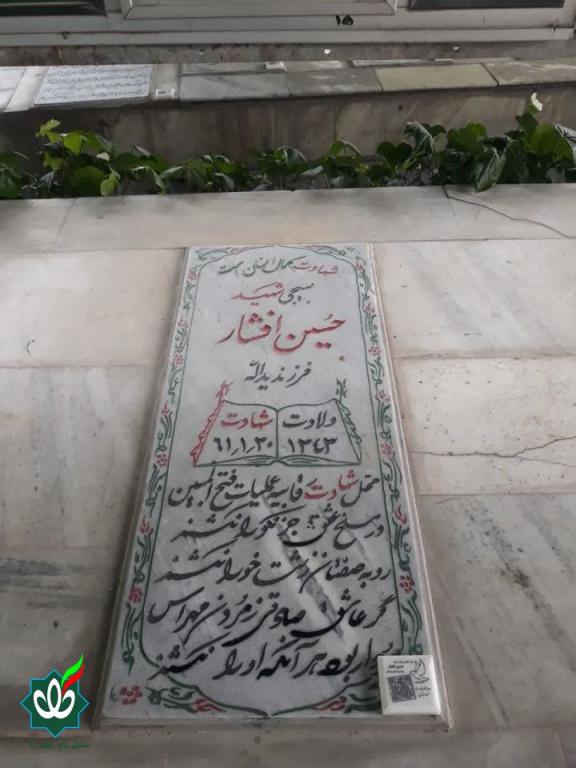 ۱۵
شهادت کمال انسان است
بسیجی شهید
حسین افشار
فرزند یداله
ولادت شهادت
۱۳۴۳ ۶۱٫۱٫۲۰
محل شهادت رقابیه عملیات فتح المبین
در مسلخ عشق جز نکو را نکشند
روبه صفتان زشت خو را نکشند
گر عاشق صادقی ز مردن مهراس
مردار بود هر آنکه او را نکشند